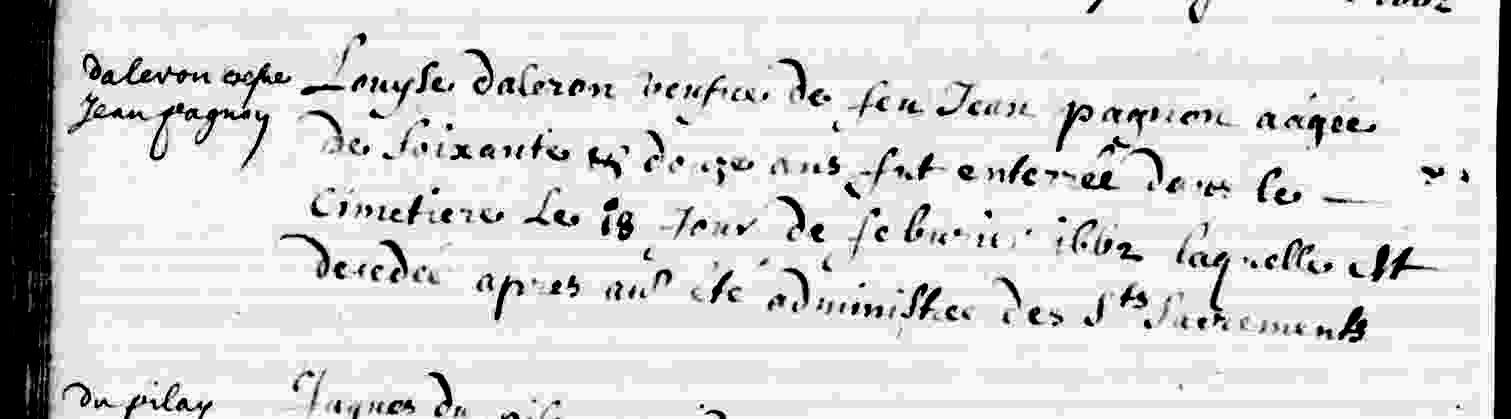 1662
daleron
Jean pagnon
Louyse daleron veufue de feu Jean pagnon aagée
de soixante et douze ans fut enterrée dans le —
Cimetiere Le 18 jour de febvrier 1662 laquelle est
decedée apres avr été administree des Sts Sacrements
du pilay
Jaques du